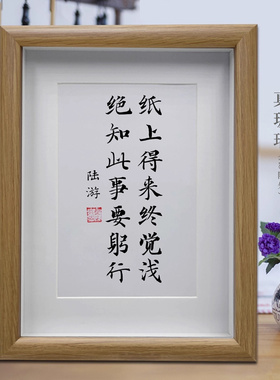 纸上得来终觉浅
绝知此事要躬行
陆游